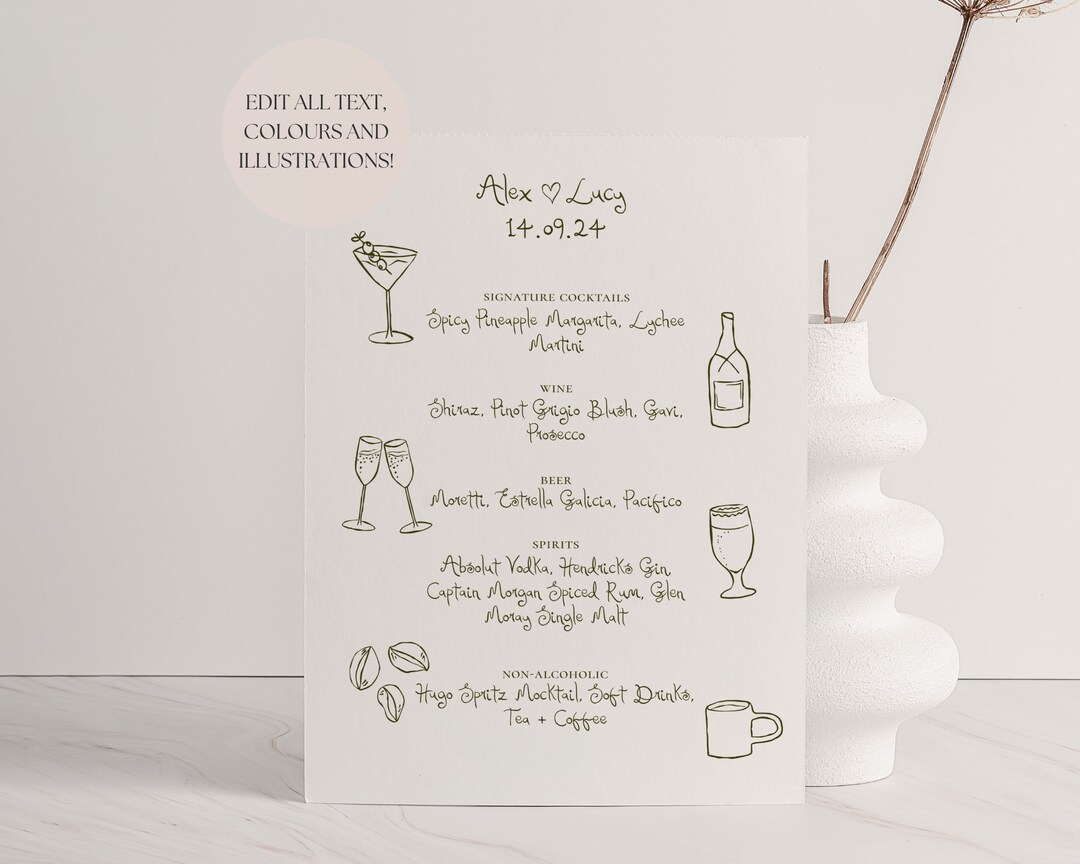 EDIT ALL TEXT,
COLOURS AND
ILLUSTRATIONS!
Alex ♡ Lucy
14.09.24
SIGNATURE COCKTAILS
Spicy Pineapple Margarita, Lychee
Martini
WINE
Shiraz, Pinot Grigio Blush, Gavi,
Prosecco
BEER
Moretti, Estrella Galicia, Pacifico
SPIRITS
Absolut Vodka, Hendricks Gin,
Captain Morgan Spiced Rum, Glen
Moray Single Malt
NON-ALCOHOLIC
Hugo Spritz Mocktail, Soft Drinks,
Tea + Coffee